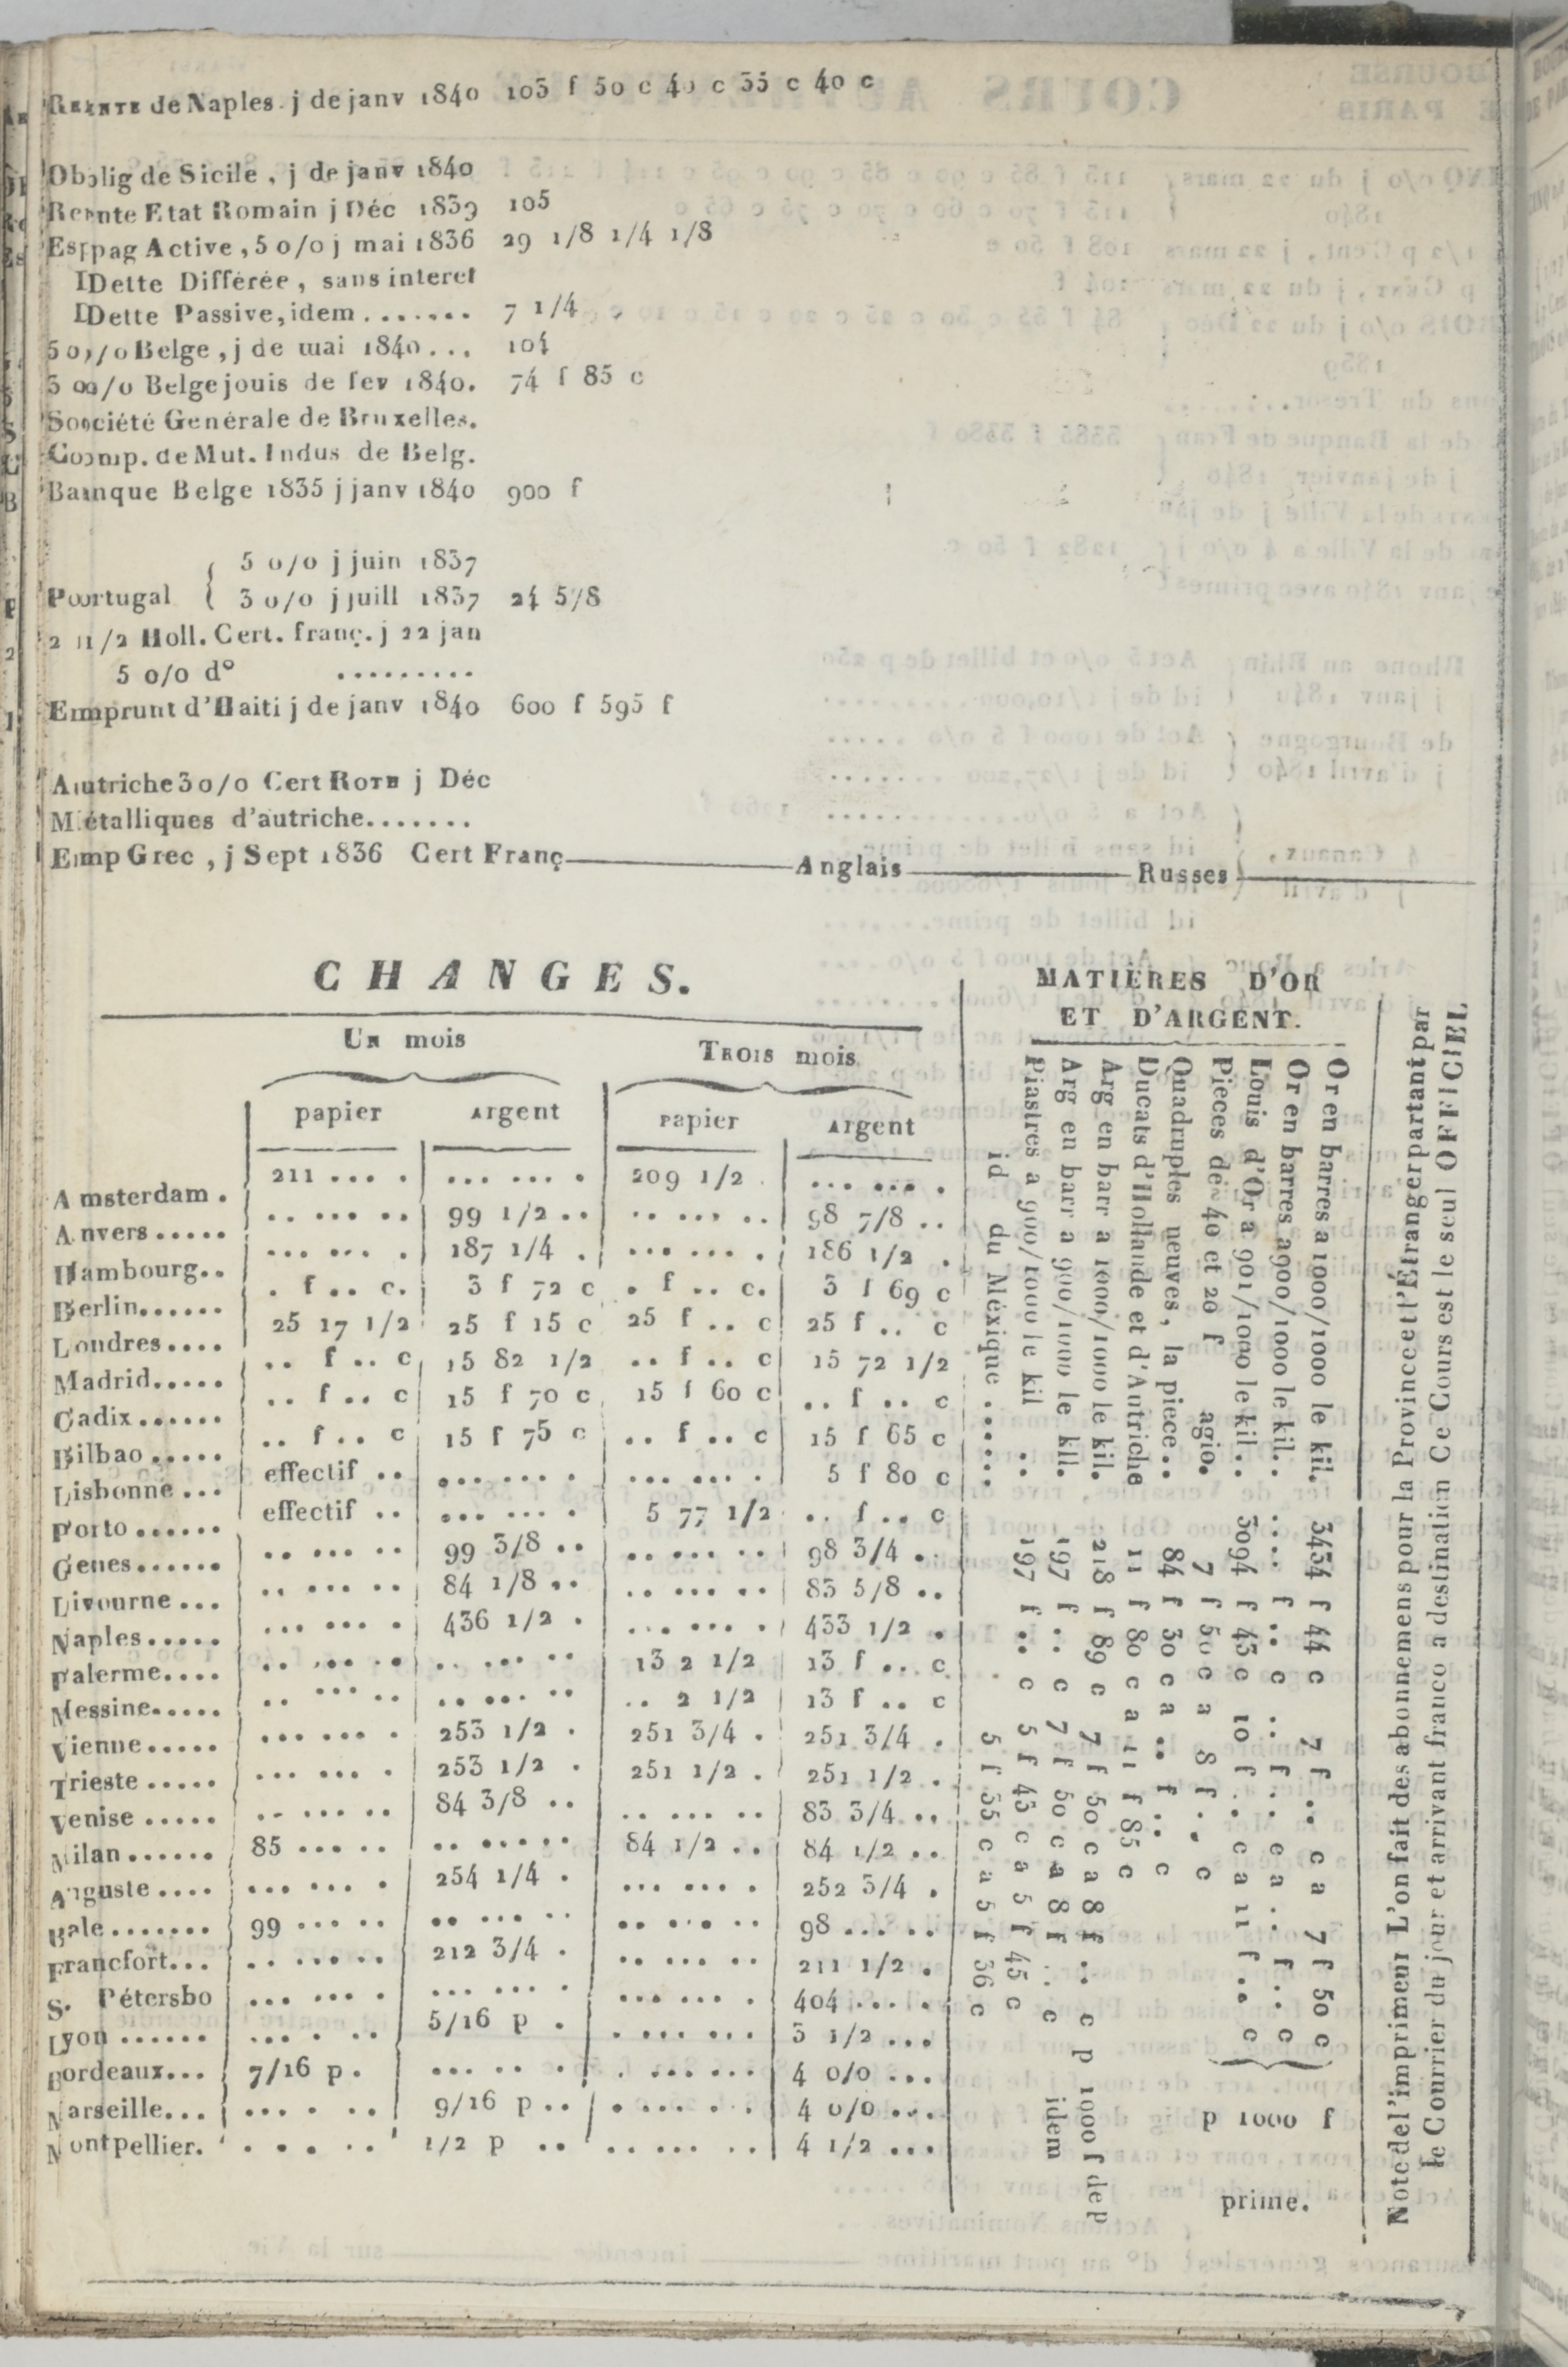 Rente de Naples. j de janv 1840 103 f 50 c 40 c 35 c 40 c
Oblig de Sicile, j de janv 1840
Rente Etat Romain j Déc 1839 105
Espag Active, 5 0/0 j mai 1836 29 1/8 1/4 1/8
Dette Différée, sans interet
Dette Passive, idem ....... 7 1/4
5 0/0 Belge, j de mai 1840... 104
3 0/0 Belge jouis de fev 1840. 74 f 85 c
Société Genérale de Bruxelles.
Comp. de Mut. Indus de Belg.
Banque Belge 1835 j janv 1840 900 f
5 0/0 j juin 1837
Portugal { 3 0/0 j juill 1837 24 5/8
2 1/2 Holl. Cert. franç. j 22 jan
5 0/0 d° .........
Emprunt d'Haiti j de janv 1840 600 f 595 f
Autriche 3 0/0 Cert ROTH j Déc
Métalliques d'autriche.......
Emp Grec, j Sept 1836 Cert Franç — Anglais — Russes —
CHANGES.
Un mois Trois mois
papier Argent papier Argent
Amsterdam . 211 ... . ... ... . 209 1/2 . ... ... .
Anvers ..... .. ... .. 99 1/2 .. .. ... .. 98 7/8 ..
Hambourg.. ... ... . 187 1/4 . ... ... . 186 1/2 .
Berlin...... . f .. c. 3 f 72 c . f .. c. 3 f 69 c
Londres.... 25 17 1/2 25 f 15 c 25 f .. c 25 f .. c
Madrid..... .. f .. c 15 82 1/2 .. f .. c 15 72 1/2
Cadix ...... .. f .. c 15 f 70 c 15 f 60 c .. f .. c
Bilbao ..... .. f .. c 15 f 75 c .. f .. c 15 f 65 c
Lisbonne ... effectif .. ... ... . ... ... . 5 f 80 c
Porto ...... effectif .. ... ... . 5 77 1/2 .. f .. c
Genes...... .. ... .. 99 3/8 .. .. ... .. 98 3/4 ..
Livourne ... .. ... .. 84 1/8 .. .. ... .. 83 5/8 ..
Naples..... ... ... . 436 1/2 . ... ... . 433 1/2 .
Palerme.... .. ... .. .. ... .. 13 2 1/2 13 f .. c
Messine..... .. ... .. .. ... .. .. 2 1/2 13 f .. c
Vienne..... ... ... . 253 1/2 . 251 3/4 . 251 3/4 .
Trieste ..... ... ... . 253 1/2 . 251 1/2 . 251 1/2 .
Venise ..... .. ... .. 84 3/8 .. .. ... .. 83 3/4 ..
Milan...... 85 ... .. .. ... .. 84 1/2 .. 84 1/2 ..
Auguste .... ... ... . 254 1/4 . ... ... . 252 3/4 .
Bale....... 99 ... .. .. ... .. .. ... .. 98 ... ..
Francfort... .. ... .. 212 3/4 . .. ... .. 211 1/2 .
S. Pétersbo ... ... . ... ... . ... ... . 404 ... .
Lyon ...... ... . .. 5/16 p . . ... ... 3 1/2 ...
Bordeaux... 7/16 p . ... .. . . ... ... 4 0/0 ...
Marseille... ... . .. 9/16 p .. . ... .. 4 0/0 ...
Montpellier. . . . .. 1/2 p .. .. ... .. 4 1/2 ...
MATIÈRES D'OR
ET D'ARGENT.
Or en barres a 1000/1000 le kil. 3434 f 44 c 7 f .. c a 7 f 50 c
Or en barres a 900/1000 le kil. . .... f .. c .. f .. c a .. f .. c
Louis d'Or a 901/1000 le kil . . 3094 f 43 c 10 f .. c a 11 f .. c
Pieces de 40 et 20 f agio. 7 f 50 c a 8 f .. c
p 1000 f
prime.
Quadruples neuves, la piece .. 84 f 30 c a .. f .. c
Ducats d'Hollande et d'Autriche 11 f 80 c a 11 f 85 c
Arg en barr a 1000/1000 le kil. 218 f 89 c 7 f 50 c a 8 f .. c p 1000 f de p
Arg en barr a 900/1000 le kil. 197 f .. c 7 f 50 c a 8 f .. c idem
Piastres a 900/1000 le kil .. 197 f .. c 5 f 43 c a 5 f 45 c
id du Méxique ...... 5 f 35 c a 5 f 36 c
Note de l'imprimeur L'on fait des abonnemens pour la Province et l'Étranger partant par
le Courrier du jour et arrivant franco a destination Ce Cours est le seul OFFICIEL